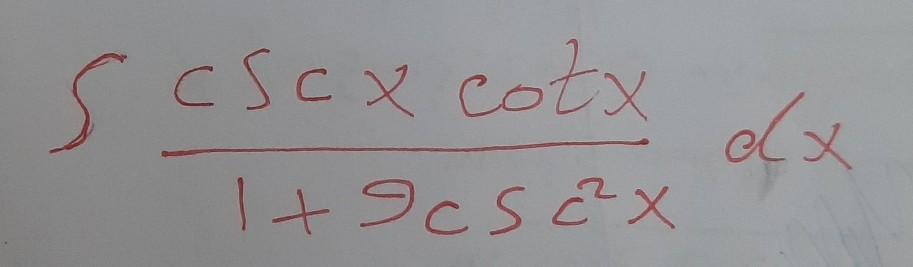 ∫ cscx cotx / 1+9csc²x dx